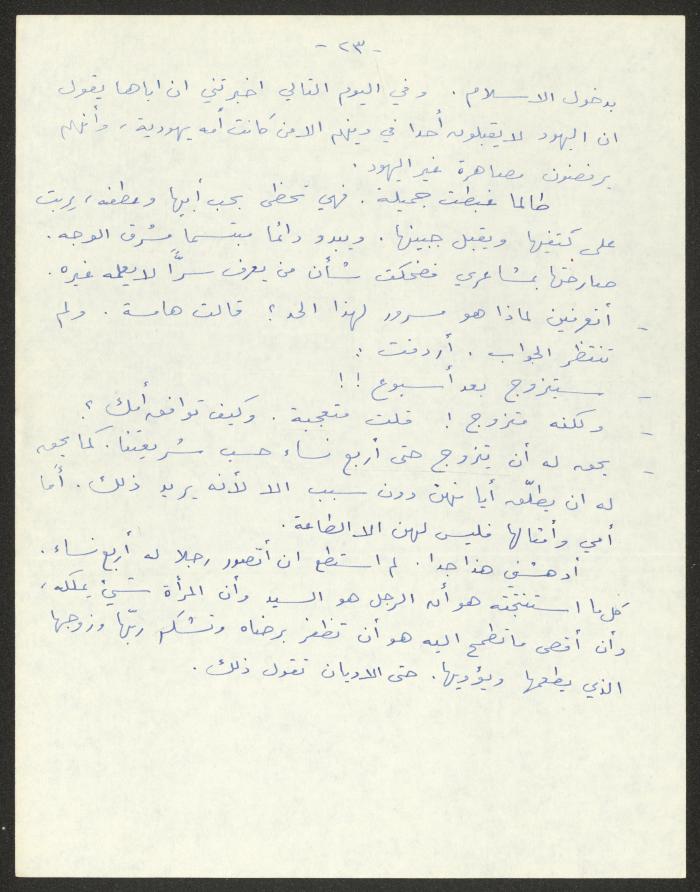 - ٢٣ -
بدخول الاسلام . وفي اليوم التالي اخبرتني ان اباها يقول
ان اليهود لا يقبلون أحدا في دينهم الا من كانت أمه يهودية ، وأنهم
يرفضون مصاهرة غير اليهود .
طالما غبطت جميلة . فهي تحظى بحب أبيها وعطفه ، يربت
على كتفيها ويقبل جبينها . ويبدو دائما مبتسما مشرق الوجه .
صارحتها بمشاعري فضحكت شأن من يعرف سرًّا لا يعلمه غيره .
- أتعرفين لماذا هو مسرور لهذا الحد ؟ قالت هامسة . ولم
تنتظر الجواب . أردفت :
- سيتزوج بعد أسبوع !!
- ولكنه متزوج ! قلت متعجبة . وكيف توافق أمك ؟
- يحق له أن يتزوج حتى أربع نساء حسب شريعتنا . كما يحق
له ان يطلّق أيا منهن دون سبب الا لأنه يريد ذلك . أما
أمي وأمثالها فليس لهن الا الطاعة .
أدهشني هذا جدا . لم استطع ان أتصور رجلا له أربع نساء .
كل ما استنتجته هو أن الرجل هو السيد وأن المرأة شيئ يملكه ،
وأن أقصى ما تطمح اليه هو أن تظفر برضاه وتشكر ربّها وزوجها
الذي يطعمها ويؤويها . حتى الاديان تقول ذلك .